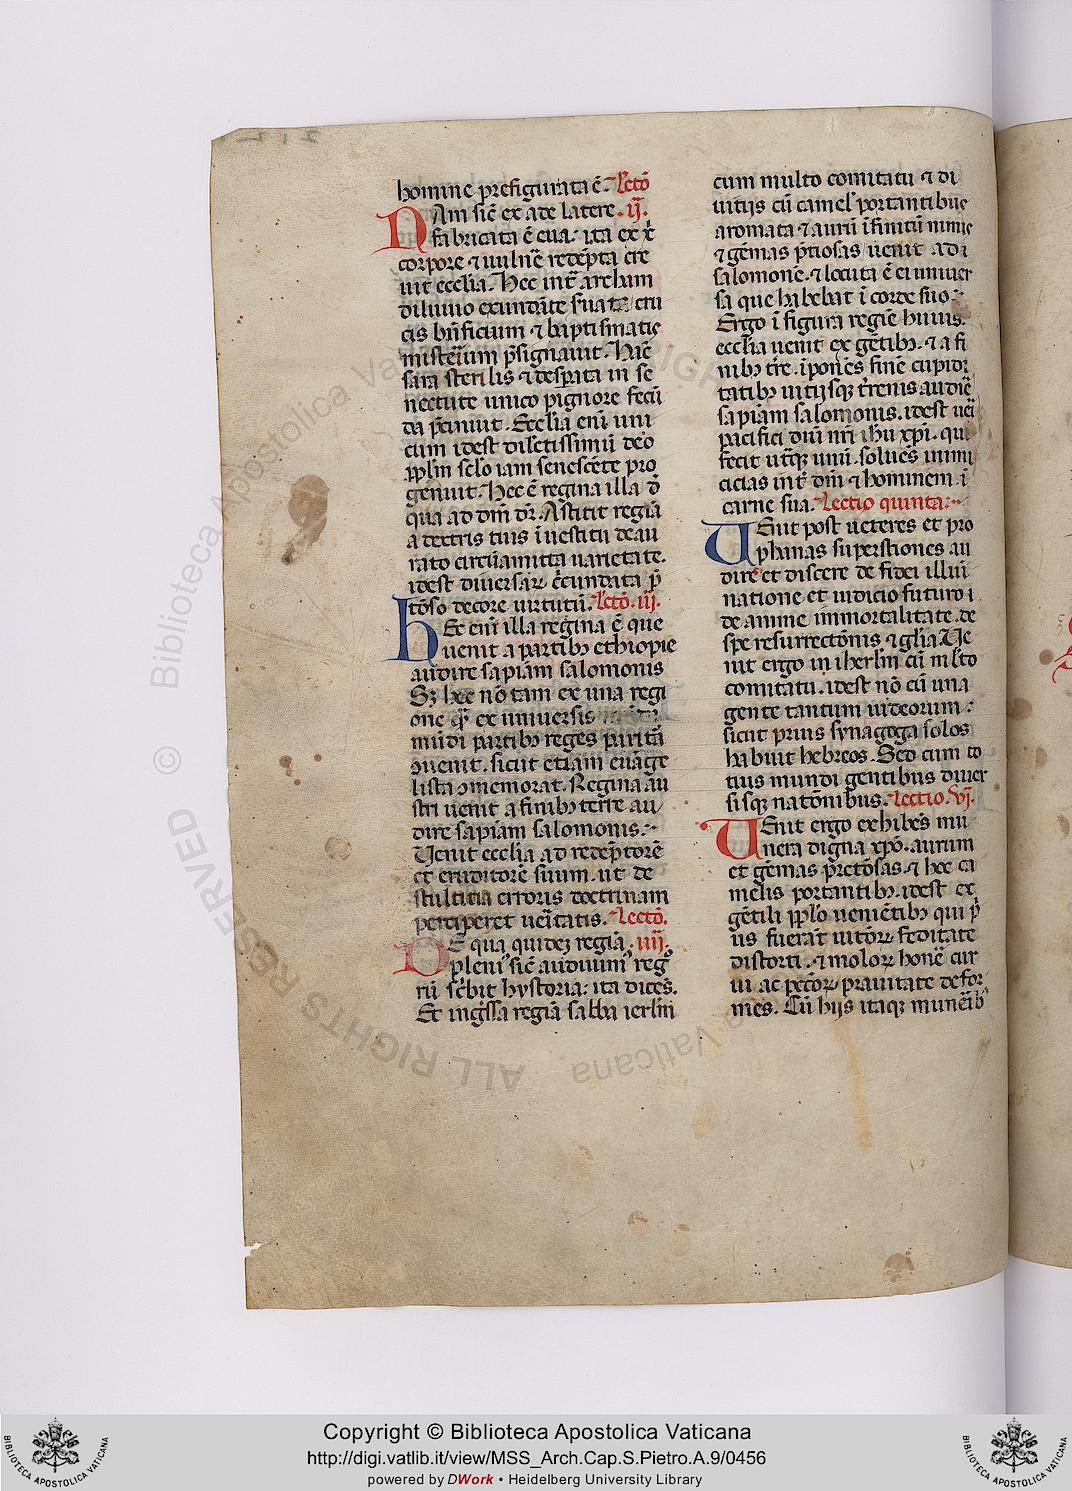 homine prefigurata ē. Lectō
Nam sic̄ ex ade latere .ij.
fabricata ē eua: ita ex x̄
corpore ⁊ uulne᷑ redēpta cre
uit ecclia. Hec int᷑ archam
diluuio exundāte sua
cis bn̄ficium ⁊ baptismatis
misteriūm p̄signauit. Hec̄
sara sterilis ⁊ desperata in se
nectute unico pignore fecū
da Ecclia eni᷑ uni
cum idest dilc̄tissimū deo
pplm sclo iam senescēte pro
genuit. Hec ē regina illa d̄
qua ad dm̄ dr̄. Astitit regīa
a dextris tuis ī uestitu deau
rato circūamicta uarietate.
idest diuersaꝝ c̄cundata p̄
tōso decore uirtutū. Lc̄tō. iij.
Hec eni᷑ illa regina ē que
uenit a partibꝰ ethiopie
audire sapiām salomonis
Sꝫ hec nō tam ex una regi
one qᷓ ex uniuersis
mūdi partibꝰ reges paritā
ↄuenit. sicut etiam euāge
lista ↄmemorat. Regina au
stri uenit a finibꝰ terre au
dire sapiām salomonis.
Uenit ecclia ad redēptorē
et eruditorē suum. ut de
stultitia erroris doctrinam
perciperet uer̄itatis. Lectō.
De qua quidez regīa. iiij.
pleniꝰ sic̄ audiuimꝰ regꝰ
rū sc̄bit hystoria: ita dicēs.
Et ing̃ssa regīa sabba ierlm̄
cum multo comitatu ⁊ di
uitijs cū camel᷑ portantibus
aromata ⁊ aurū īfinitū nimis
⁊ gēmas p̄tiosas uenit ad
salomonē. ⁊ locuta ē ei uniuer
sa que habebat ī corde suo
Ergo ī figura regīe huius.
ecclia uenit ex gētibꝰ. ⁊ a fi
nibꝰ tr̄e. īponēs finē cupidi
tatibꝰ uitijsqꝫ tr̄renis audīe
sapiam salomonis. idest ueī
pacifici dnī nr̄i ihū xpī. qui
fecit ut᷑qꝫ unū. soluēs inimi
cicias int᷑ dm̄ ⁊ hominem ī
carne sua. Lectio quinta.
Uenit post ueteres et pro
phanas superst̄iones au
dire et discere de fidei illuī
natione et iudicio futuro ⁊
de anime immortalitate. de
spe resurrectōnis ⁊ glīa. Ue
nit ergo in iherlm̄ cū mlto
comitatu. idest nō cū una
gente tantum iudeorum:
sicut prius synagoga solos
habuit hebreos. Sed cum to
tius mundi gentibus diuer
sisqꝫ natōnibus. Lectio. vi.
Uenit ergo exhibēs mu
nera digna xpō. aurum
et gēmas prētōsas. ⁊ hec ca
melis portantibꝰ. idest ex
gētili pplo ueniētibꝰ qui p̄
us fuerāt uitōꝝ feditate
distorti. ⁊ moloꝝ honē cur
ui ac pcc̄oꝝ prauitate defor
mes. Cū hijs itaqꝫ munēibꝰ
Copyright © Biblioteca Apostolica Vaticana
http://digi.vatlib.it/view/MSS_Arch.Cap.S.Pietro.A.9/0456
powered by DWork • Heidelberg University Library
BIBLIOTECA APOSTOLICA VATICANA
BIBLIOTECA APOSTOLICA VATICANA
© Biblioteca Apostolica Vaticana
ALL RIGHTS RESERVED